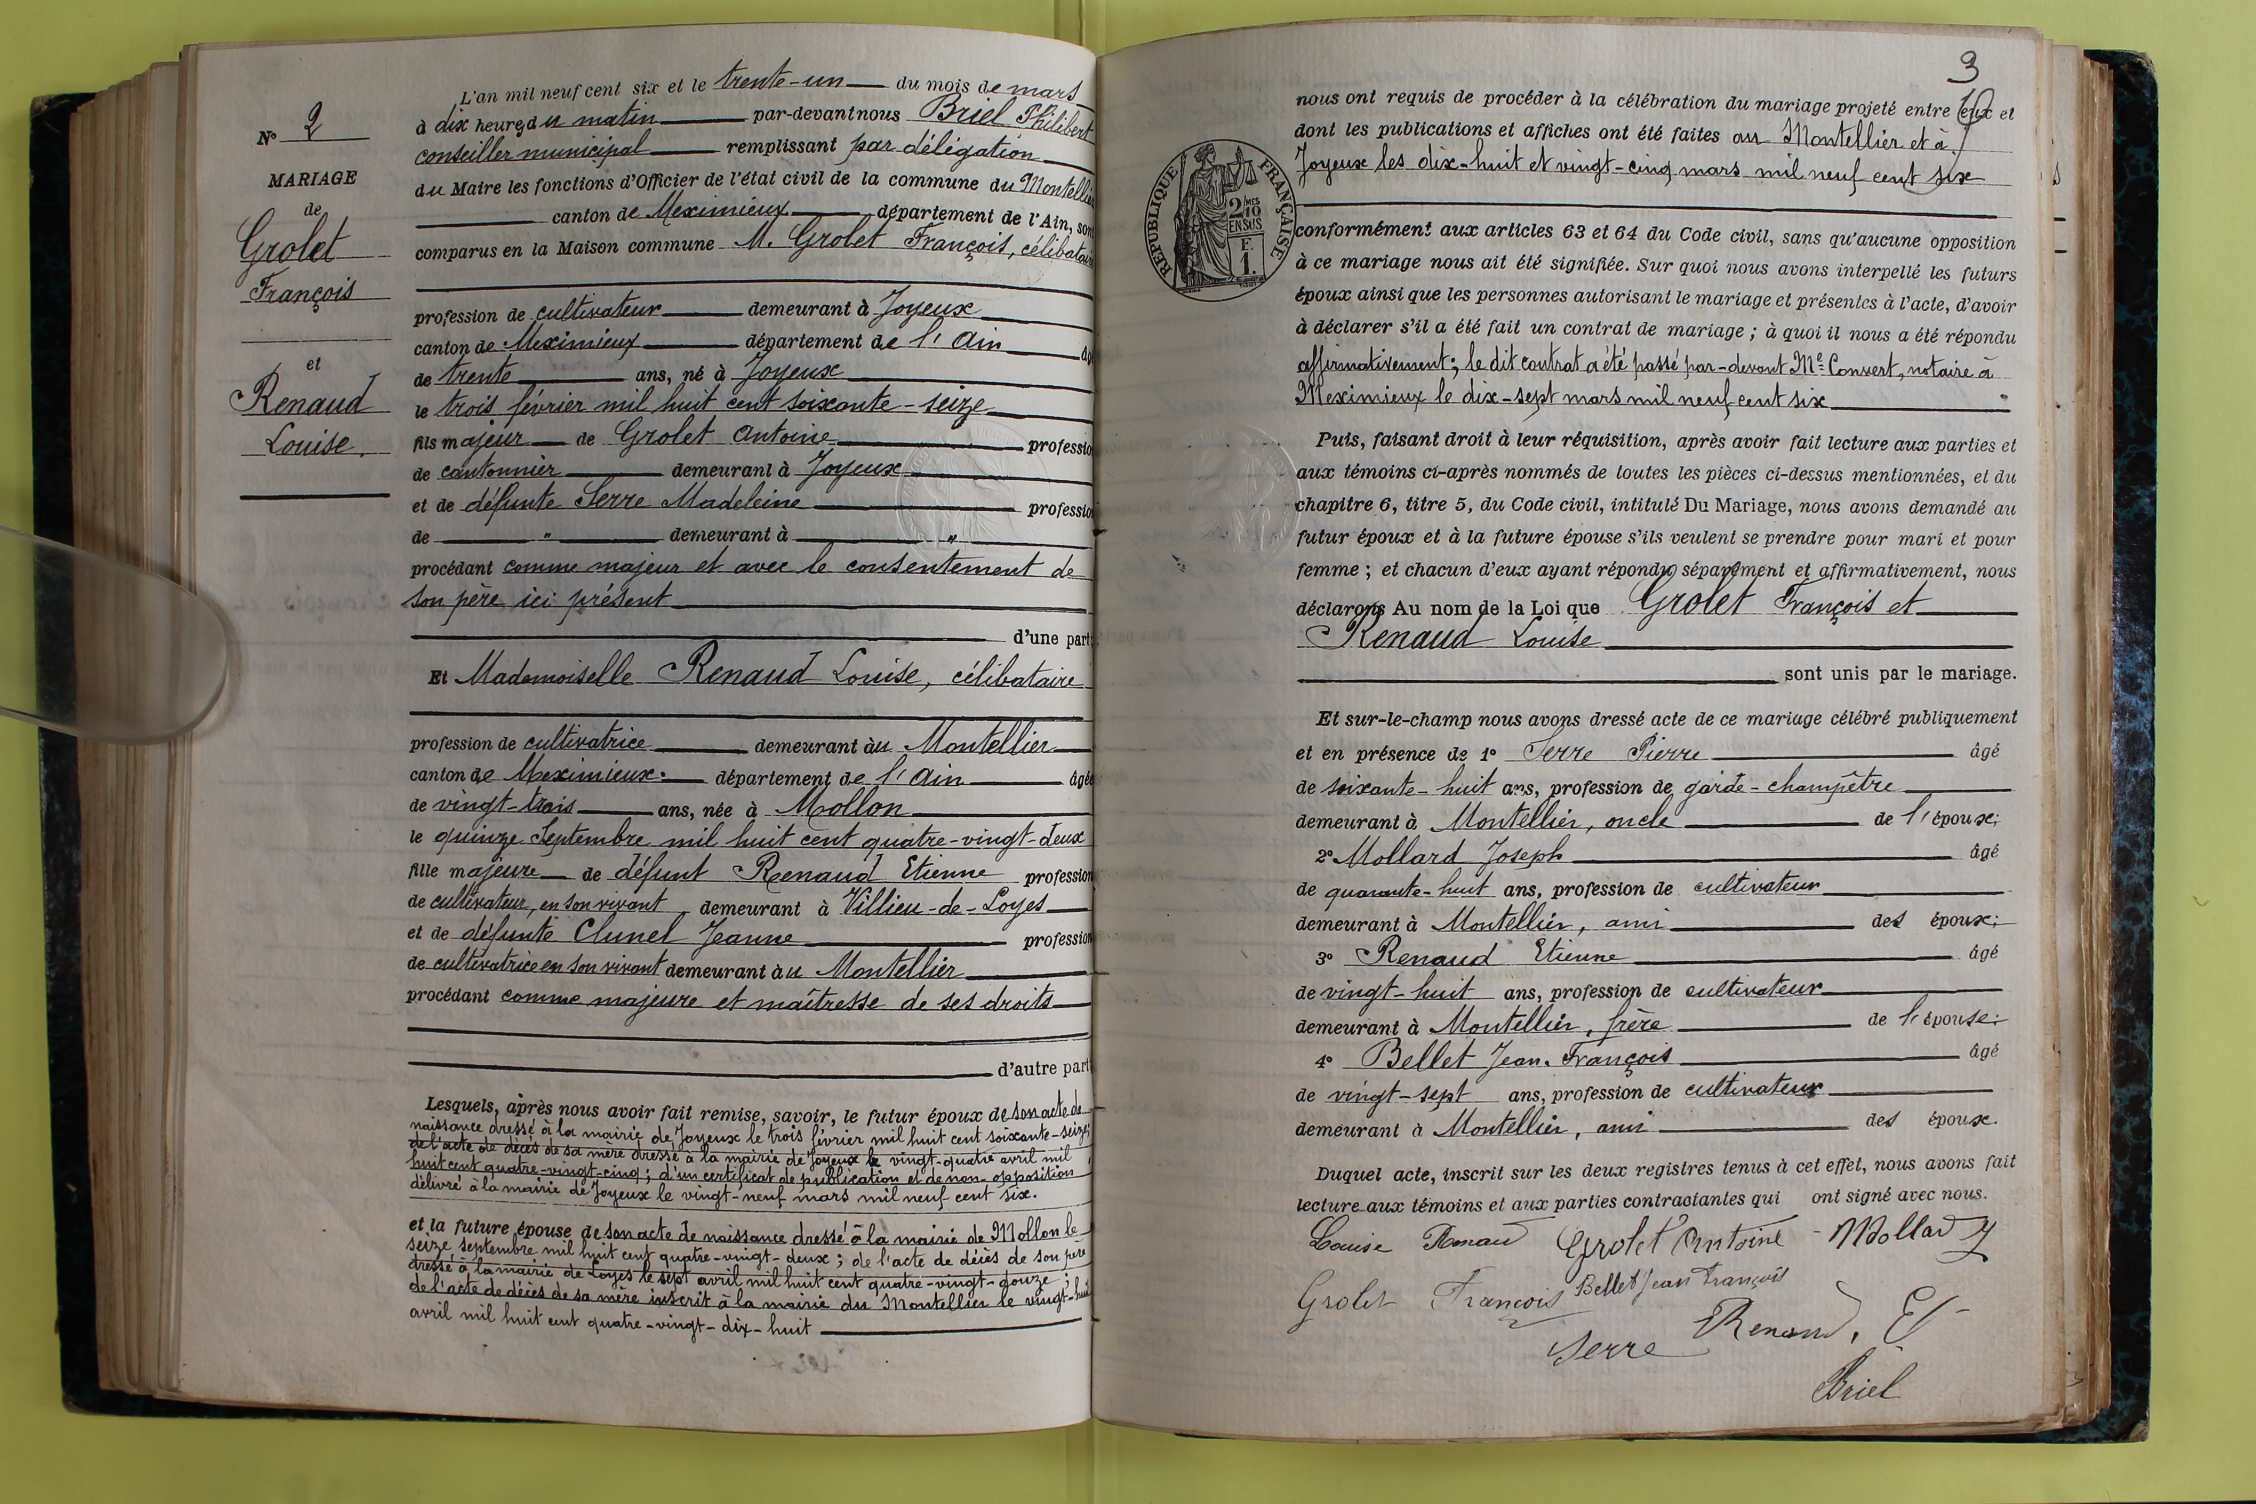 N° 2
MARIAGE
de
Grolet
François
et
Renaud
Louise.
L'an mil neuf cent six et le trente-un du mois de mars
à dix heures du matin par-devant nous Briel Philibert
conseiller municipal remplissant par délégation
du Maire les fonctions d'Officier de l'état civil de la commune du Montellier
canton de Meximieux département de l'Ain, sont
comparus en la Maison commune M. Grolet François, célibataire
profession de cultivateur demeurant à Joyeux
canton de Meximieux département de l'Ain âgé
de trente ans, né à Joyeux
le trois février mil huit cent soixante-seize
fils majeur de Grolet Antoine profession
de cantonnier demeurant à Joyeux
et de défunte Serre Madeleine profession
de " demeurant à "
procédant comme majeur et avec le consentement de
son père ici présent
d'une part
Et Mademoiselle Renaud Louise, célibataire
profession de cultivatrice demeurant àu Montellier
canton de Meximieux. département de l'Ain âgée
de vingt-trois ans, née à Mollon
le quinze Septembre mil huit cent quatre-vingt-deux
fille majeure de défunt Renaud Etienne profession
de cultivateur, en son vivant demeurant à Villieu-de-Loyes
et de défunte Clunel Jeanne profession
de cultivatrice en son vivant demeurant àu Montellier
procédant comme majeure et maîtresse de ses droits
d'autre part
Lesquels, après nous avoir fait remise, savoir, le futur époux de son acte de
naissance dressé à la mairie de Joyeux le trois février mil huit cent soixante-seize;
de l'acte de décès de sa mère dressé à la mairie de Joyeux le vingt-quatre avril mil
huit cent quatre-vingt-cinq; d'un certificat de publication et de non-opposition
délivré à la mairie de Joyeux le vingt-neuf mars mil neuf cent six.
et la future épouse de son acte de naissance dressé à la mairie de Mollon le
seize septembre mil huit cent quatre-vingt-deux; de l'acte de décès de son père
dressé à la mairie de Loyes le sept avril mil huit cent quatre-vingt-douze;
de l'acte de décès de sa mère inscrit à la mairie du Montellier le vingt-huit
avril mil huit cent quatre-vingt-dix-huit
3
RÉPUBLIQUE FRANÇAISE
2 MES
10
EN SUS
F.
1.
nous ont requis de procéder à la célébration du mariage projeté entre eux et
dont les publications et affiches ont été faites au Montellier et à
Joyeux les dix-huit et vingt-cinq mars mil neuf cent six
conformément aux articles 63 et 64 du Code civil, sans qu'aucune opposition
à ce mariage nous ait été signifiée. Sur quoi nous avons interpellé les futurs
époux ainsi que les personnes autorisant le mariage et présentes à l'acte, d'avoir
à déclarer s'il a été fait un contrat de mariage ; à quoi il nous a été répondu
affirmativement; le dit contrat a été passé par-devant Me Convert, notaire à
Meximieux le dix-sept mars mil neuf cent six
Puis, faisant droit à leur réquisition, après avoir fait lecture aux parties et
aux témoins ci-après nommés de toutes les pièces ci-dessus mentionnées, et du
chapitre 6, titre 5, du Code civil, intitulé Du Mariage, nous avons demandé au
futur époux et à la future épouse s'ils veulent se prendre pour mari et pour
femme ; et chacun d'eux ayant répondu séparément et affirmativement, nous
déclarons Au nom de la Loi que Grolet François et
Renaud Louise
sont unis par le mariage.
Et sur-le-champ nous avons dressé acte de ce mariage célébré publiquement
et en présence de 1° Serre Pierre âgé
de soixante-huit ans, profession de garde-champêtre
demeurant à Montellier, oncle de l'épouse;
2° Mollard Joseph âgé
de quarante-huit ans, profession de cultivateur
demeurant à Montellier, ami des époux;
3° Renaud Etienne âgé
de vingt-huit ans, profession de cultivateur
demeurant à Montellier, frère de l'épouse;
4° Bellet Jean-François âgé
de vingt-sept ans, profession de cultivateur
demeurant à Montellier, ami des époux.
Duquel acte, inscrit sur les deux registres tenus à cet effet, nous avons fait
lecture aux témoins et aux parties contractantes qui ont signé avec nous.
Louise Renaud Grolet Antoine Mollard J
Grolet François Bellet Jean François
Serre Renaud, E
Briel